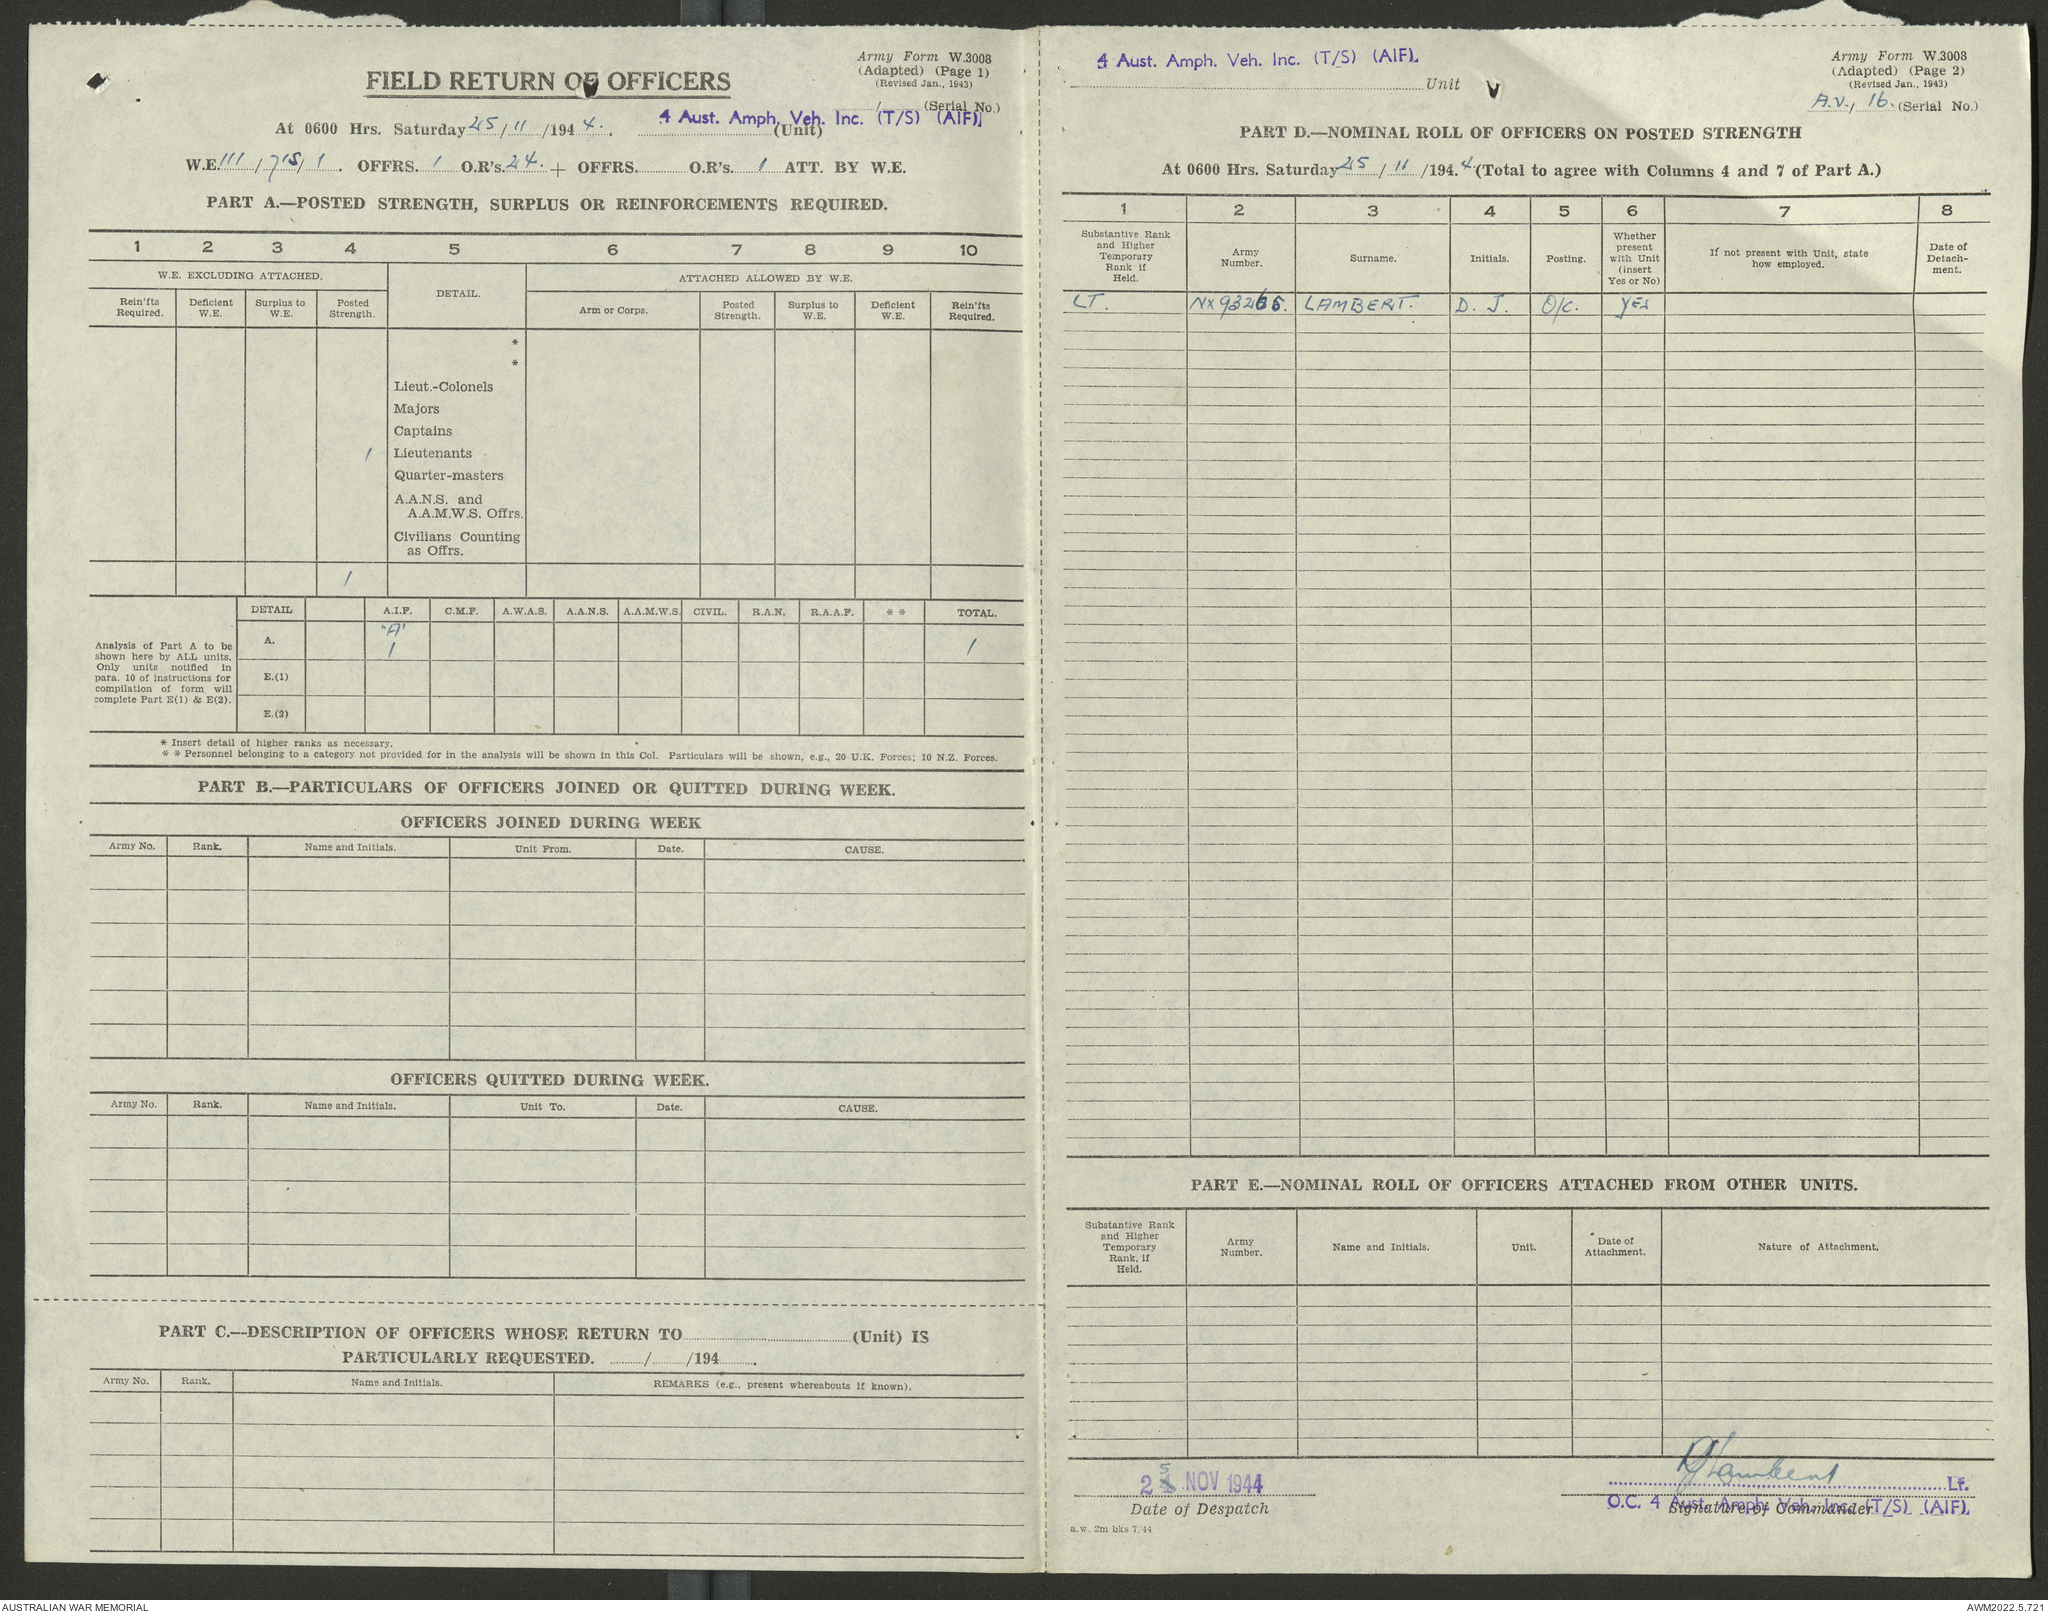 Army Form W.3008
(Adapted) (Page 1)
(Revised Jan., 1943)
FIELD RETURN OF OFFICERS
....../...... (Serial No.)
4 Aust. Amph. Veh. Inc. (T/S) (AIF).
At 0600 Hrs. Saturday 25/11/1944. (Unit)
W.E. III/715/1. OFFRS. 1 O.R's. 24. + OFFRS. O.R's. 1 ATT. BY W.E.
PART A.—POSTED STRENGTH, SURPLUS OR REINFORCEMENTS REQUIRED.
1 2 3 4 5 6 7 8 9 10
W.E. EXCLUDING ATTACHED. DETAIL. ATTACHED ALLOWED BY W.E.
Rein'fts Required. Deficient W.E. Surplus to W.E. Posted Strength. Arm or Corps. Posted Strength. Surplus to W.E. Deficient W.E. Rein'fts Required.
*
*
Lieut.-Colonels
Majors
Captains
1 Lieutenants
Quarter-masters
A.A.N.S. and
A.A.M.W.S. Offrs.
Civilians Counting
as Offrs.
1
DETAIL A.I.F. C.M.F. A.W.A.S. A.A.N.S. A.A.M.W.S. CIVIL. R.A.N. R.A.A.F. * * TOTAL.
Analysis of Part A to be
shown here by ALL units.
Only units notified in
para. 10 of instructions for
compilation of form will
complete Part E(1) & E(2).
"A"
A. 1 1
E.(1)
E.(2)
* Insert detail of higher ranks as necessary.
* * Personnel belonging to a category not provided for in the analysis will be shown in this Col. Particulars will be shown, e.g., 20 U.K. Forces; 10 N.Z. Forces.
PART B.—PARTICULARS OF OFFICERS JOINED OR QUITTED DURING WEEK.
OFFICERS JOINED DURING WEEK
Army No. Rank. Name and Initials. Unit From. Date. CAUSE.
OFFICERS QUITTED DURING WEEK.
Army No. Rank. Name and Initials. Unit To. Date. CAUSE.
PART C.—DESCRIPTION OF OFFICERS WHOSE RETURN TO (Unit) IS
PARTICULARLY REQUESTED. ....../....../194......
Army No. Rank. Name and Initials. REMARKS (e.g., present whereabouts if known).
4 Aust. Amph. Veh. Inc. (T/S) (AIF).
Unit
Army Form W.3008
(Adapted) (Page 2)
(Revised Jan., 1943)
A.V./16. (Serial No.)
PART D.—NOMINAL ROLL OF OFFICERS ON POSTED STRENGTH
At 0600 Hrs. Saturday 25/11/1944. (Total to agree with Columns 4 and 7 of Part A.)
1 2 3 4 5 6 7 8
Substantive Rank and Higher Temporary Rank if Held. Army Number. Surname. Initials. Posting. Whether present with Unit (insert Yes or No) If not present with Unit, state how employed. Date of Detachment.
LT. NX93265. LAMBERT. D. J. O/C. YES
PART E.—NOMINAL ROLL OF OFFICERS ATTACHED FROM OTHER UNITS.
Substantive Rank and Higher Temporary Rank, if Held. Army Number. Name and Initials. Unit. Date of Attachment. Nature of Attachment.
25 NOV 1944
Date of Despatch
DJLambert Lt.
O.C. 4 Aust. Amph. Veh. Inc. (T/S) (AIF).
Signature of Commander
a.w. 2m bks 7/44
AUSTRALIAN WAR MEMORIAL
AWM2022.5.721